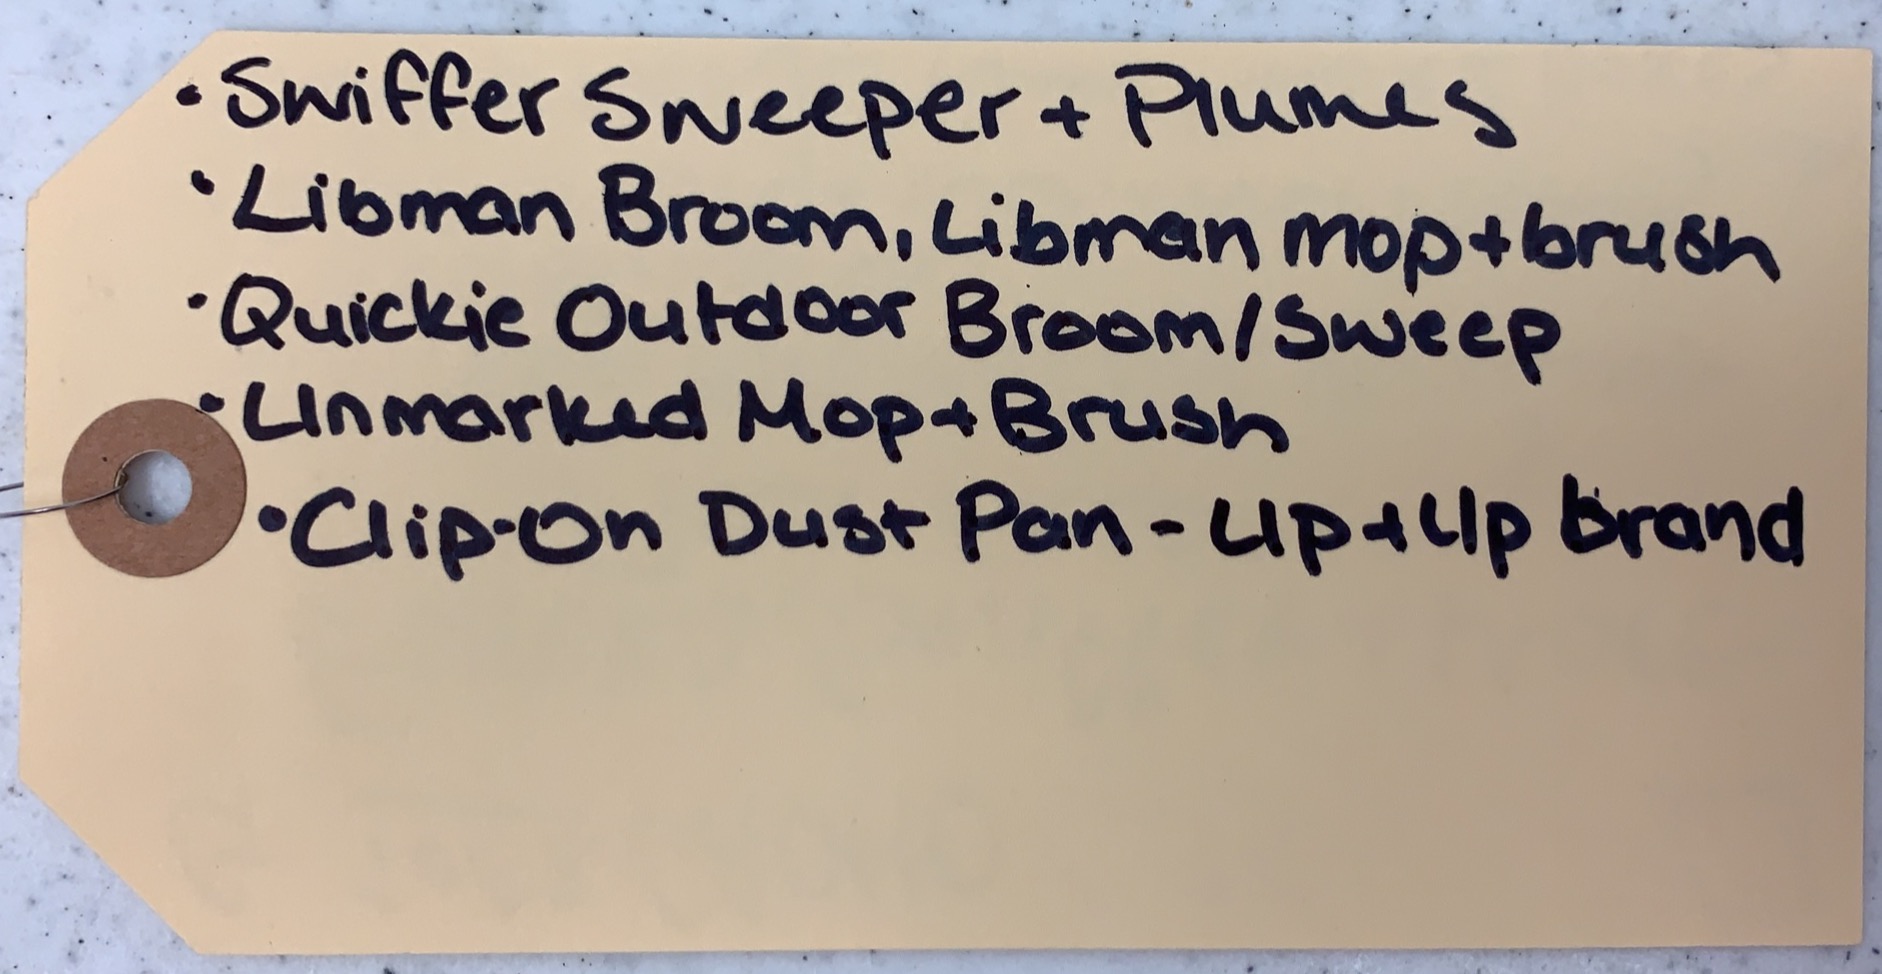 • Swiffer Sweeper + Plumes
• Libman Broom, Libman mop + brush
• Quickie Outdoor Broom/Sweep
• Unmarked Mop + Brush
• Clip-On Dust Pan - Up + Up brand